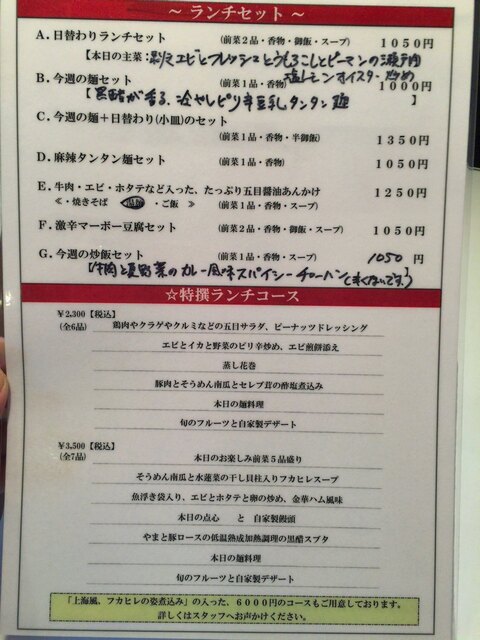 ～ ランチセット ～
A. 日替わりランチセット （前菜２品・香物・御飯・スープ） １０５０円
【本日の主菜：エビとフレッシュとうもろこしとピーマンの瀬戸内
塩レモンオイスター炒め
B. 今週の麺セット （前菜１品・香物） １０００円
【黒酢が香る、冷やしピリ辛豆乳タンタン麺 】
C. 今週の麺＋日替わり(小皿)のセット
（前菜１品・香物・半御飯） １３５０円
D. 麻辣タンタン麺セット （前菜１品・香物） １０５０円
E. 牛肉・エビ・ホタテなど入った、たっぷり五目醤油あんかけ １２５０円
≪・焼きそば ・ご飯 ≫ （前菜１品・香物・スープ）
F. 激辛マーボー豆腐セット （前菜２品・香物・御飯・スープ） １０５０円
G. 今週の炒飯セット （前菜１品・香物・スープ） 1050 円
【牛肉と夏野菜のカレー風味スパイシーチャーハン(辛くないです)】
☆特撰ランチコース
￥2,300【税込】
(全6品) 鶏肉やクラゲやクルミなどの五目サラダ、ピーナッツドレッシング
エビとイカと野菜のピリ辛炒め、エビ煎餅添え
蒸し花巻
豚肉とそうめん南瓜とセレブ茸の酢塩煮込み
本日の麺料理
旬のフルーツと自家製デザート
￥3,500【税込】
(全7品) 本日のお楽しみ前菜５品盛り
そうめん南瓜と水蓮菜の干し貝柱入りフカヒレスープ
魚浮き袋入り、エビとホタテと卵の炒め、金華ハム風味
本日の点心 と 自家製饅頭
やまと豚ロースの低温熟成加熱調理の黒醋スブタ
本日の麺料理
旬のフルーツと自家製デザート
「上海風、フカヒレの姿煮込み」の入った、６０００円のコースもご用意しております。
詳しくはスタッフへお声かけください。